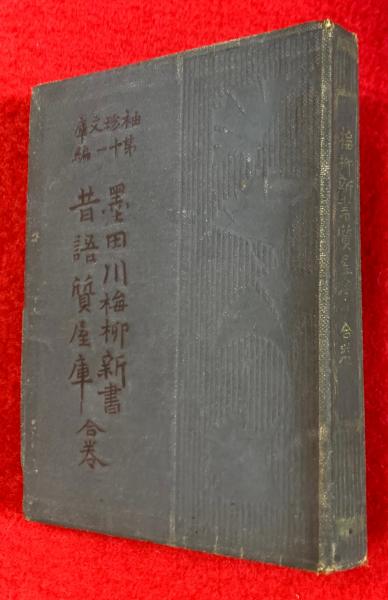 袖珍文庫
第十一編
墨田川梅柳新書
昔語質屋庫
合巻
梅柳新書質屋庫 合巻